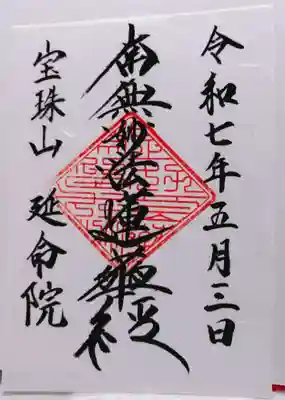 令和七年五月三日
南無妙法蓮華経
宝珠山 延命院